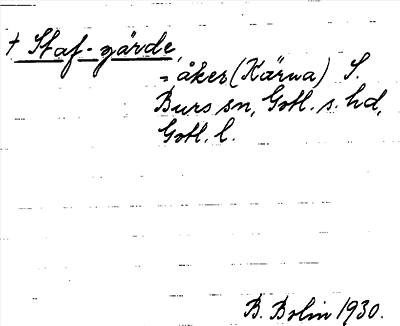 † Staf-gärde,
= åker (Kärna) S.
Burs sn, Gotl. s. hd,
Gotl. l.
B. Bolin 1930.